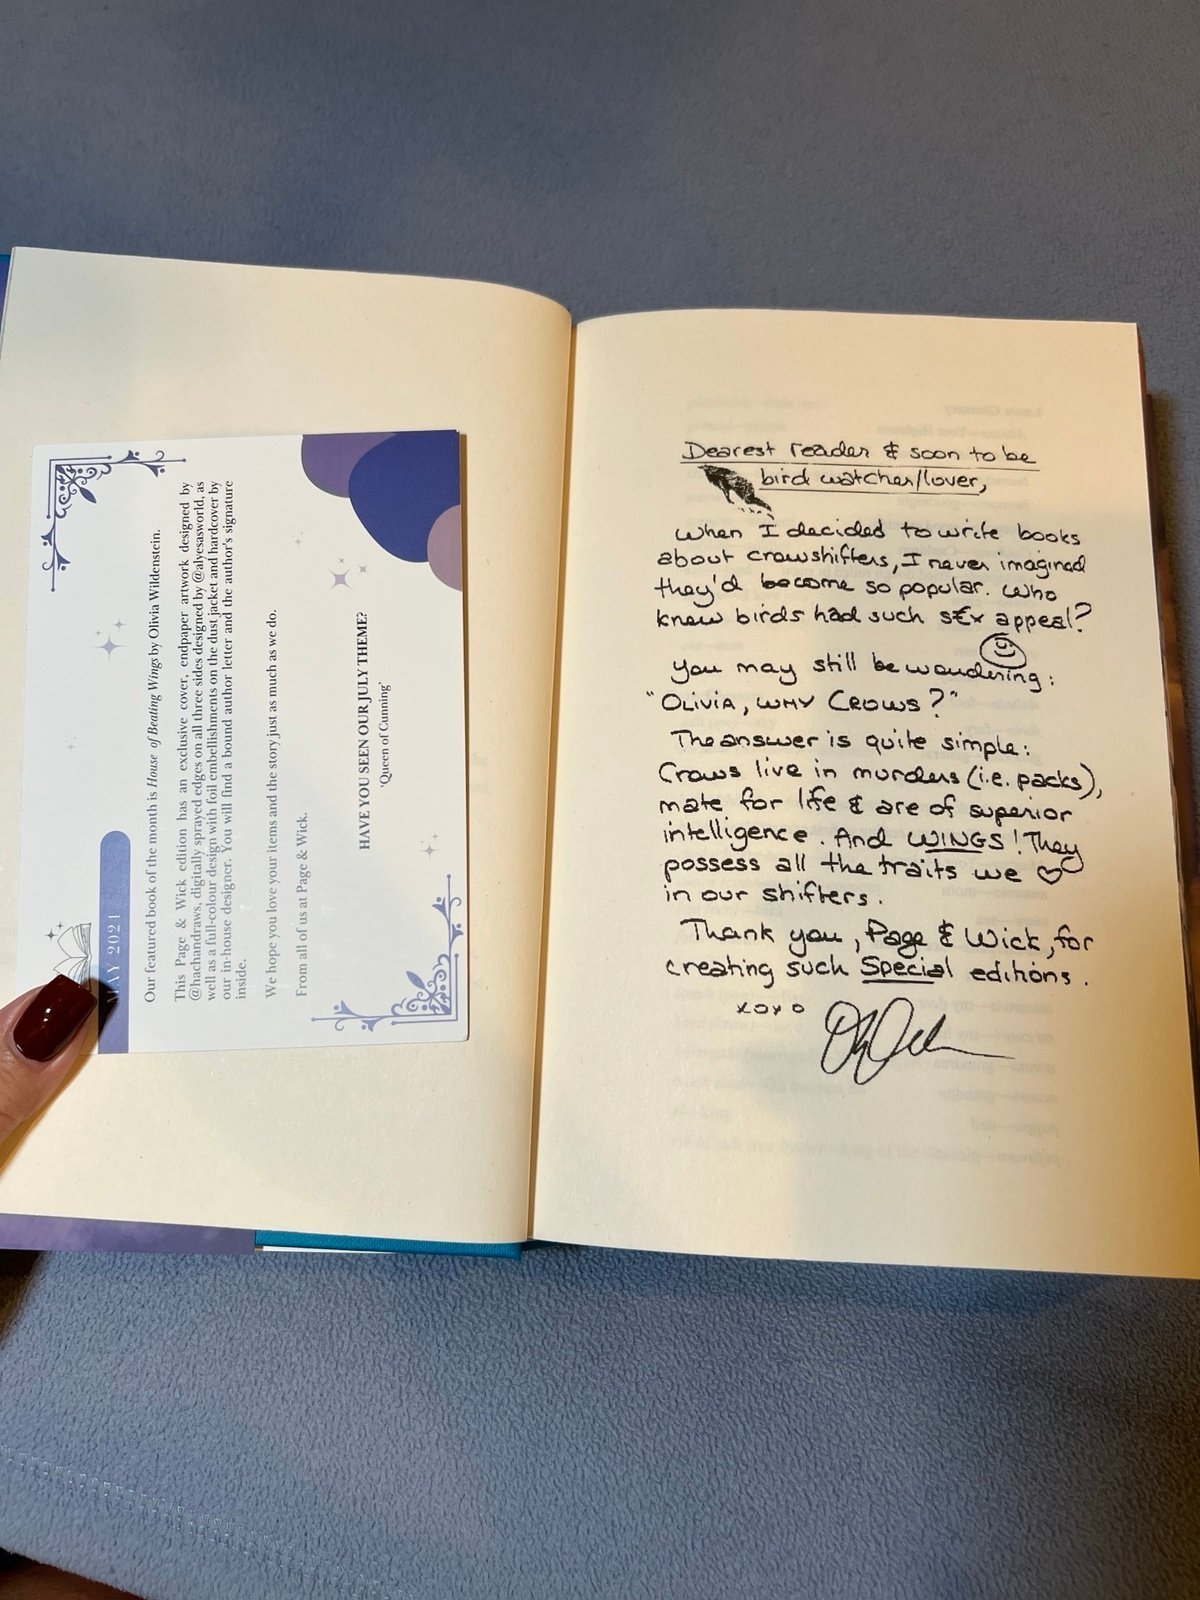 MAY 2024
Our featured book of the month is House of Beating Wings by Olivia Wildenstein.
This Page & Wick edition has an exclusive cover, endpaper artwork designed by
@hachandraws, digitally sprayed edges on all three sides designed by @alyesasworld, as
well as a full-colour design with foil embellishments on the dust jacket and hardcover by
our in-house designer. You will find a bound author letter and the author's signature
inside.
We hope you love your items and the story just as much as we do.
From all of us at Page & Wick.
HAVE YOU SEEN OUR JULY THEME?
'Queen of Cunning'
Dearest reader & soon to be
bird watcher/lover,
When I decided to write books
about crowshifters, I never imagined
they'd become so popular. Who
knew birds had such s€x appeal?
You may still be wondering:
"OLIVIA, WHY CROWS?"
The answer is quite simple:
Crows live in murders (i.e. packs),
mate for life & are of superior
intelligence. And WINGS! They
possess all the traits we ♡
in our shifters.
Thank you, Page & Wick, for
creating such Special editions.
xoxo